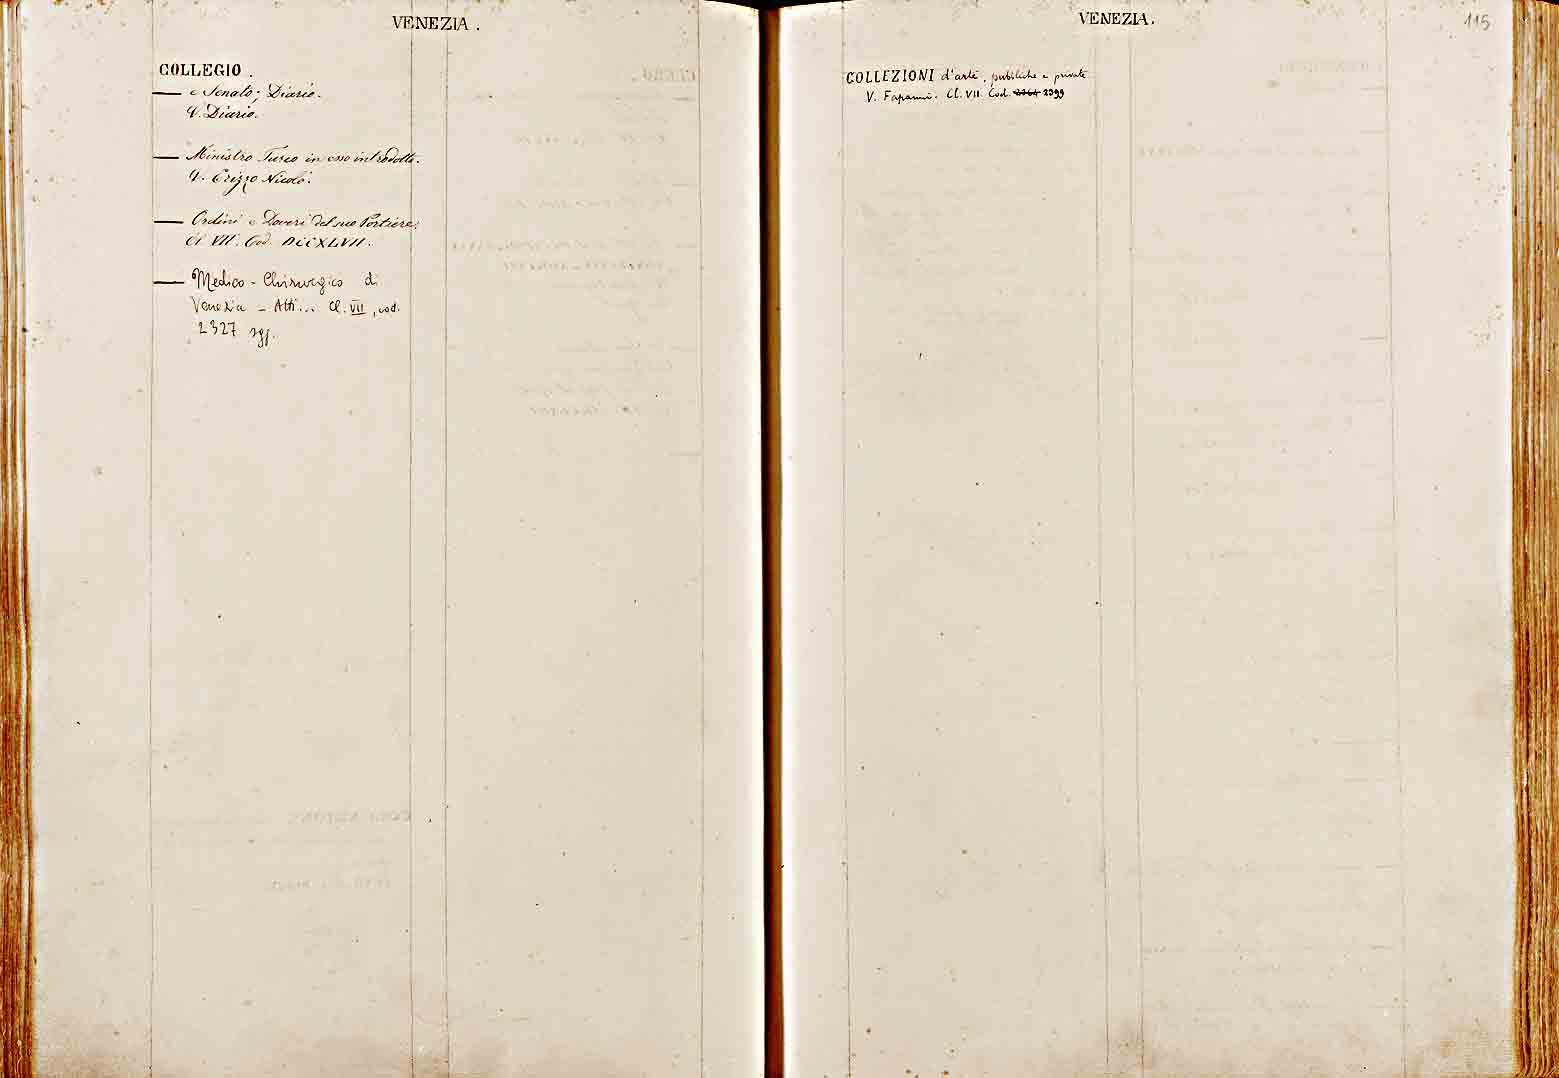 VENEZIA.
COLLEGIO.
— e Senato; Diario.
V. Diario.
— Ministro Turco in esso introdotto.
V. Erizzo Nicolò.
— Ordini e Doveri del suo Portiere.
Cl VII. Cod. DCCXLVII.
— Medico-Chirurgico di
Venezia - Atti... Cl. VII, cod.
2327 sgg.
VENEZIA.
115
COLLEZIONI d'arte, pubbliche e private
V. Fapanni. Cl. VII. Cod. 2399